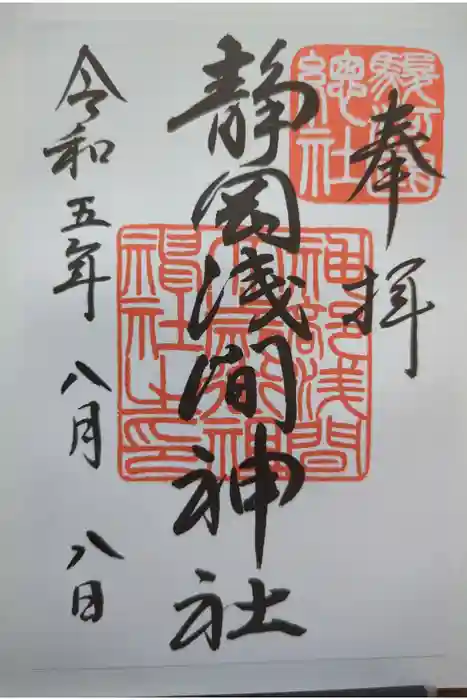 奉拝
駿河國
總社
静岡浅間神社
神部浅間
令和五年 八月 八日